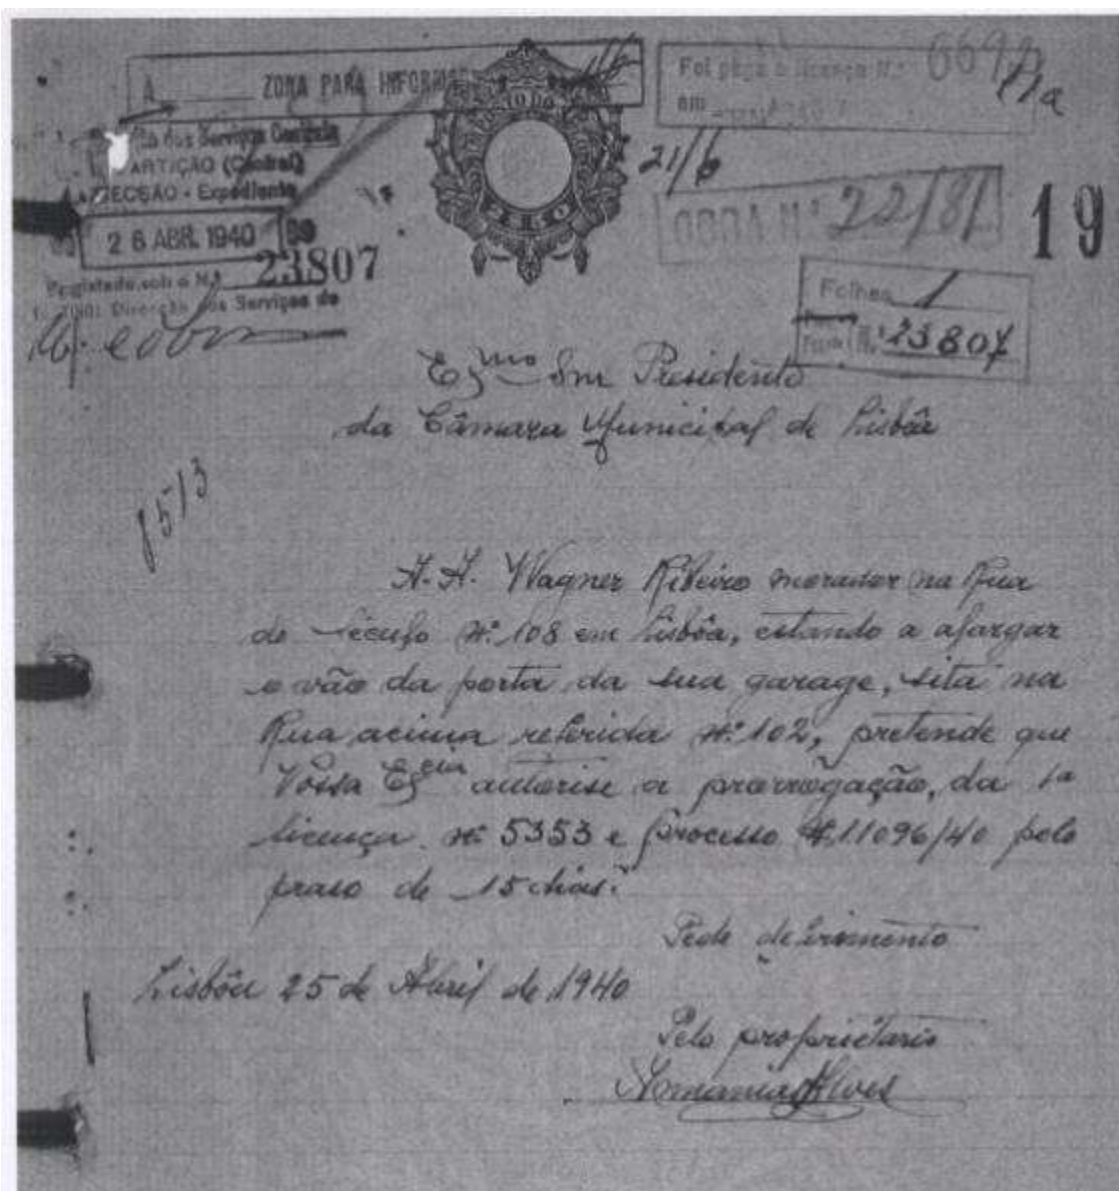 A ZONA PARA INFORM
Foi paga a licença Nº 669
em
dos Serviços Centrais
ARTIÇÃO (Central)
SECÇÃO - Expediente
21/6
OBRA Nº 22/81
19
26 ABR. 1940
Registado sob o Nº 23807
Direcção dos Serviços de
Folhas 1
23807
Exmo Snr Presidente
da Câmara Municipal de Lisbôa
1513
A. A. Wagner Ribeiro morador na Rua
do Século Nº 108 em Lisbôa, estando a alargar
o vão da porta da sua garage, sita na
Rua acima referida Nº 102, pretende que
Vossa Excia autorise a prorrogação, da 1a
licença Nº 5353 e processo Nº 11096/40 pelo
praso de 15 dias.
Pede deferimento
Lisbôa 25 de Abril de 1940
Pelo proprietario
Alves